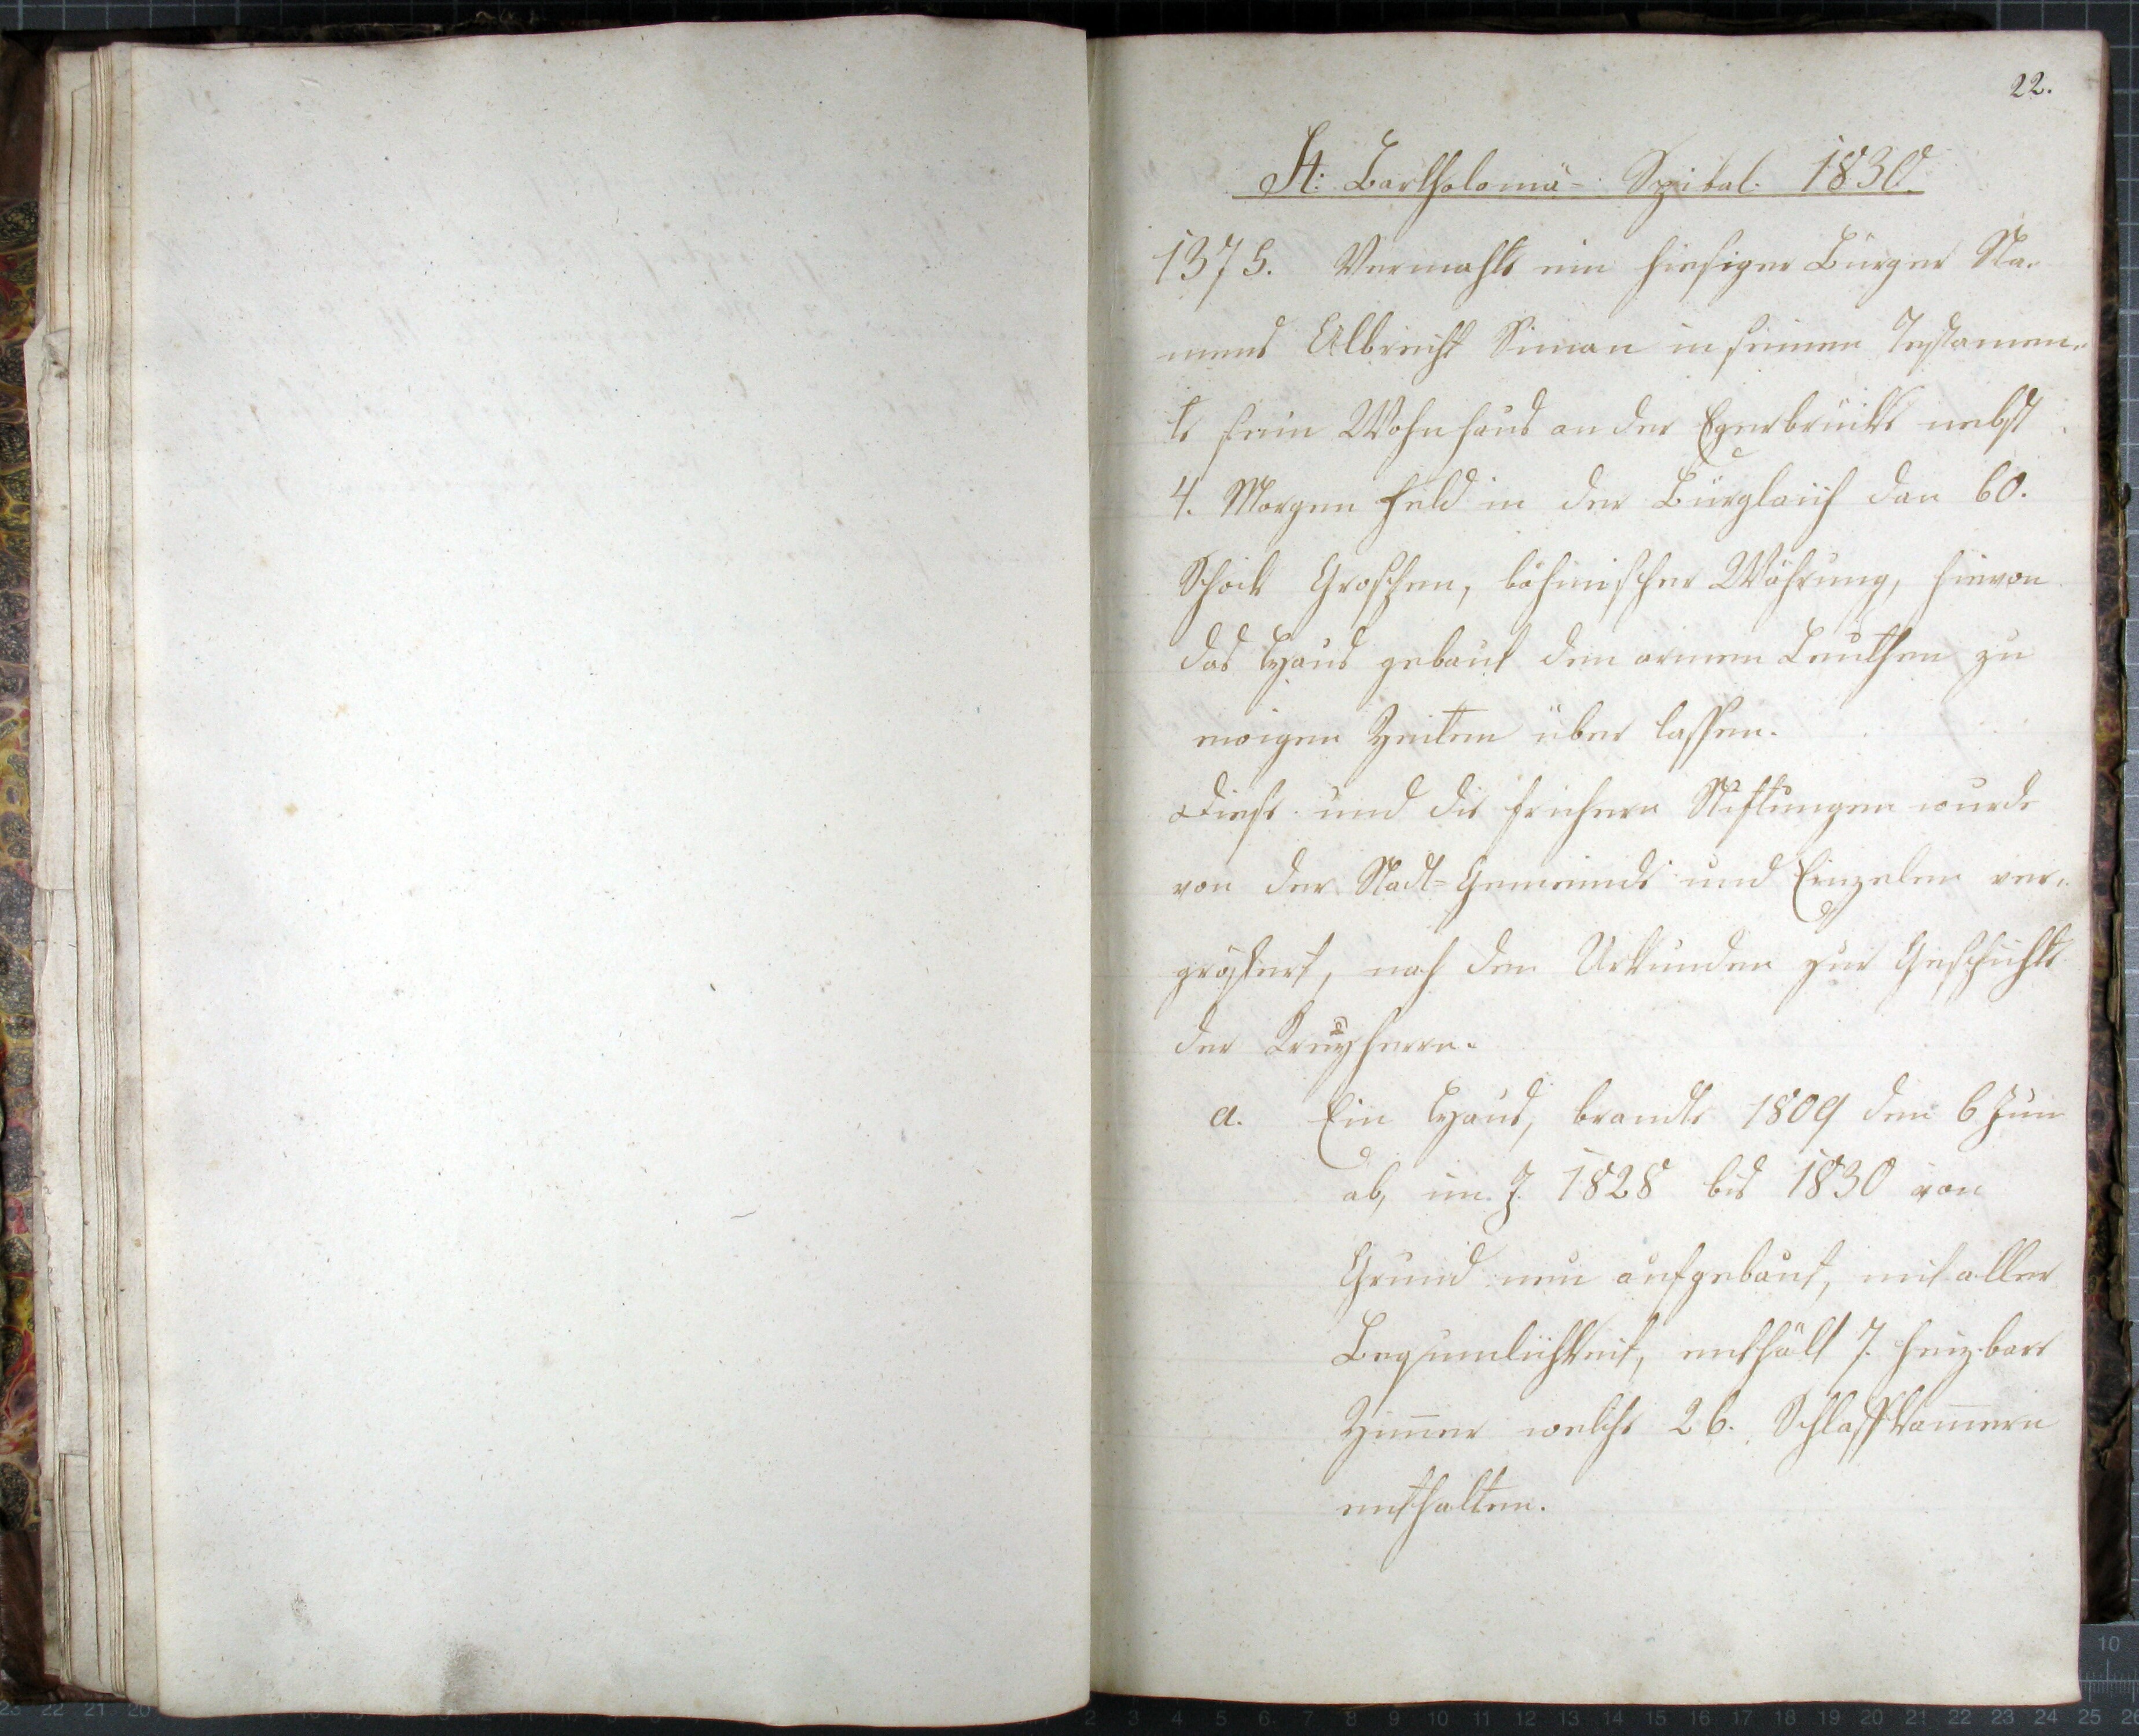 22.
St: Bartholomä- Spital. 1830.
1375. Vermahte ein hiesiger Bürger Na-
mens Albrecht Siman in seinen Testamen-
te sein Wohnhaus an der Egerbrücke nebst
4. Morgen Feld in der Bürglaiich dan 60.
Schock Groschen, böhmischer Währung, hievon
das Haus gebaut den armen Leuthen zu
ewigen Zeiten über lassen.
Diese und die frühern Stiftungen wurde
von der Stadt=Gemeinde und Einzelen ver-
größert, nach den Urkunden zur Geschichte
der Kreuzherrn.
a. Ein Haus, brandte 1809 den 6 Jun
ab, im J. 1828 bis 1830 von
Grund neu aufgebaut, mit aller
Bequemlichkeit, enthält 7. heizbare
Zim̄er welche 26. Schlaffkam̄ern
enthalten.